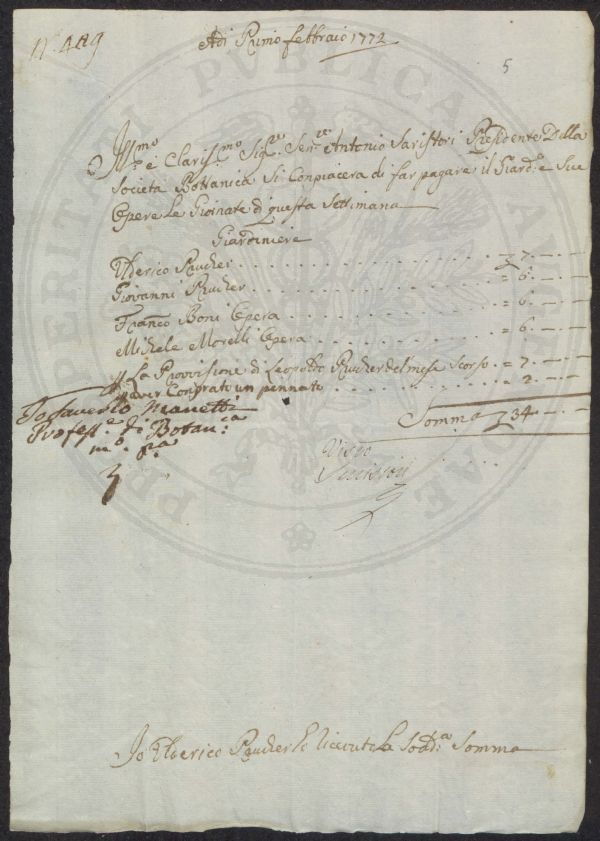 N.° 409
Adi Primo Febbraio 1772
5
Ill.mo e Claris.mo Sig.re Sen.re Antonio Saristori Presidente Della
Società Bottanica Si Conpiacera di far pagare il Giard.e e Sue
Opere Le Giornate di questa Settimana
Giardiniere
Ulderico Prucher . . . . . . = 7. — —
Giovanni Prucher . . . . . . = 6. — —
Franc.o Boni Opera . . . . . . = 6. — —
Michele Morelli Opera . . . . . . = 6. — —
La Provvisione di Leopoldo Prucher del mese Scorso = 7. — —
aver Conprato un pennato . . . . . . = 2. — —
Somma 34. — —
Io Saverio Manetti
Profess.e di Botan.ca
m.o p.a
Visto
Io Ulderico Prucher ò riceuto La Sodd.a Somma
PROSPERITATI PVBLICAE AVGENDAE